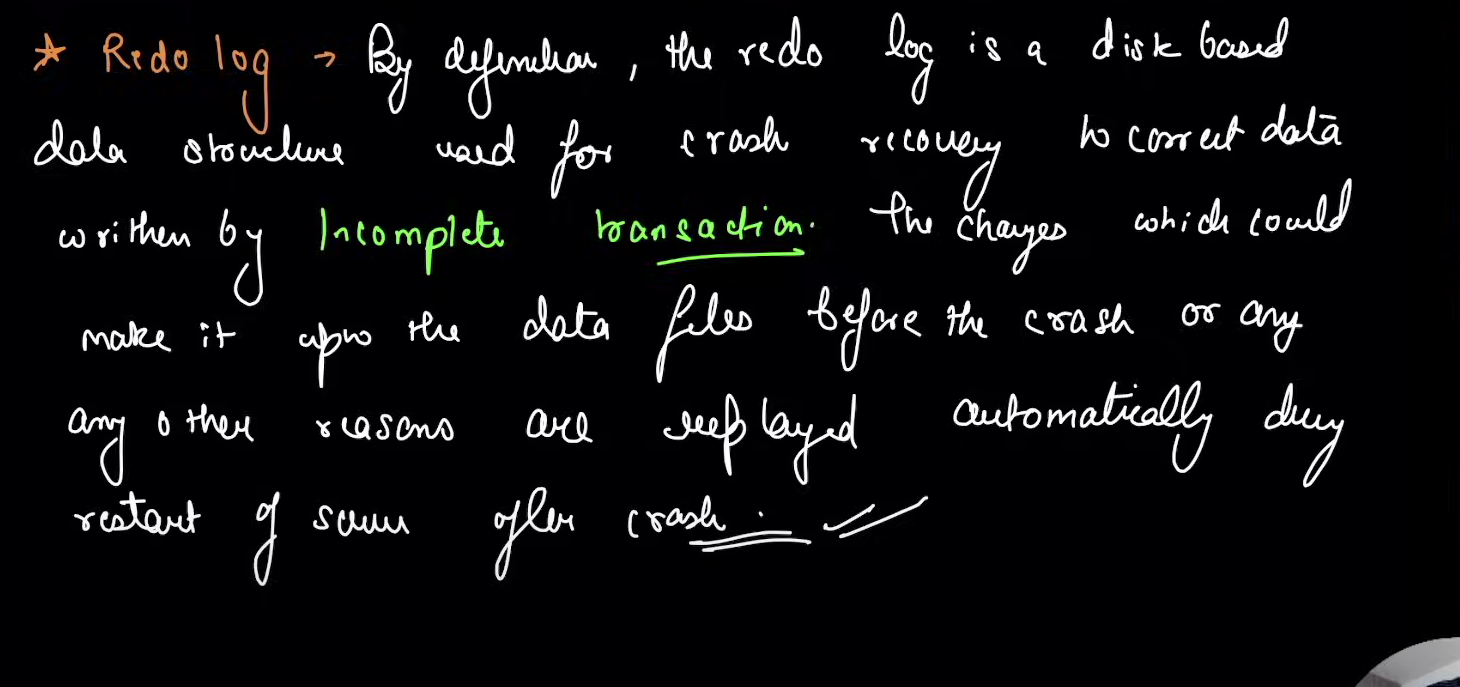 * Redo log → By definition, the redo log is a disk based
data structure used for crash recovery to correct data
written by Incomplete transaction. The changes which could
make it upto the data files before the crash or any
any other reasons are replayed automatically during
restart of server after crash.